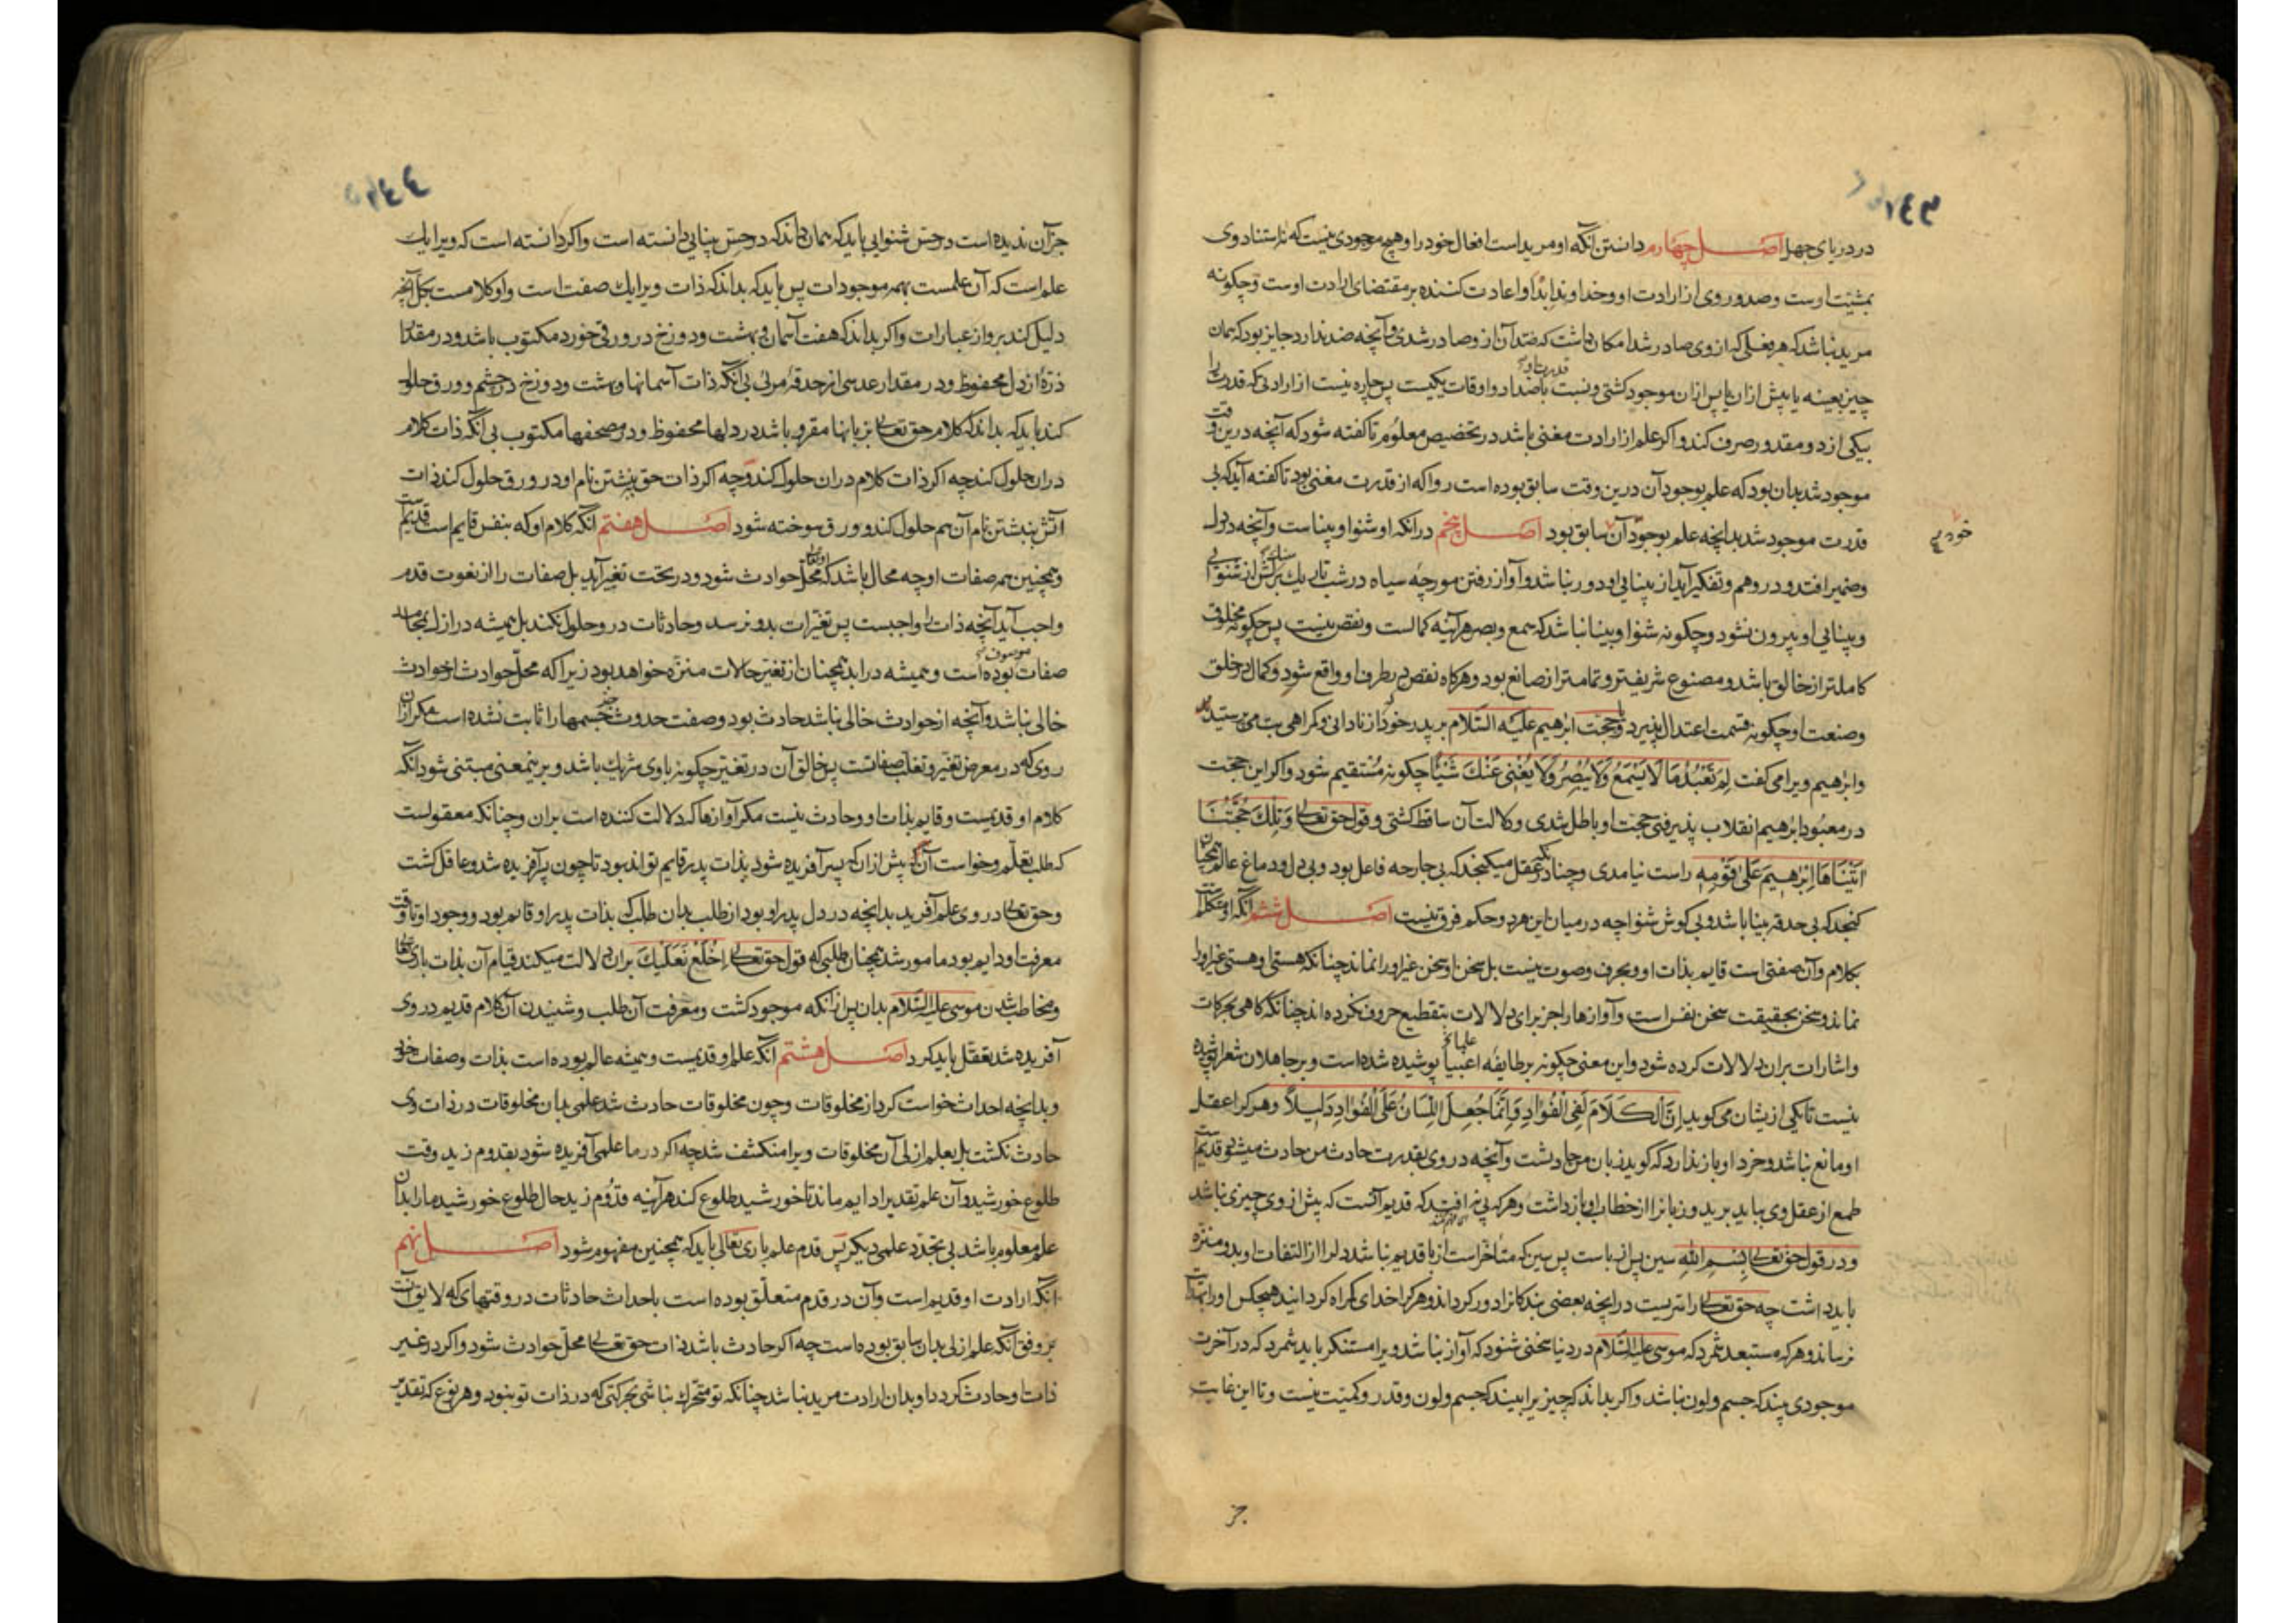 در دریای جهل اصل چهارم دانستن آنکه او مرید است افعال خود را و هیچ موجودی نیست که نه استناد وی
بمشیت اوست و صدور وی از ارادت او و خداوند ابدا و اعادت کننده بر مقتضای ارادت اوست و چگونه
مرید نباشد که هر فعلی که از وی صادر شد امکان داشت که ضد آن ازو صادر شدی و آنچه ضد ندارد جایز بود که همان
چیز بعینه یا پیش از ان یا پس از ان موجود کشتی و نسبت قدرت او با اضداد و اوقات یکیست پس چاره نیست از ارادتی که قدرت را
بیکی از دو مقدور صرف کند و اکر علم از ارادت مغنی باشد در تخصیص معلوم تا کفته شود که آنچه درین وقت
موجود شد بدان بود که علم بوجود آن درین وقت سابق بوده است روا که از قدرت مغنی بود تا کفته آید که بی
قدرت موجود شد بدانچه علم بوجود آن سابق بود اصل پنجم در آنکه او شنوا و بیناست و آنچه در دل
خودی
و ضمیر افتد و در وهم و تفکیر آید از بینایی او دور نباشد و آواز رفتن مورچه سیاه در شب تاریک بر سنک از شنوایی
و بینایی او بیرون نشود و چکونه شنوا و بینا نباشد که سمع و بصر هرآینه کمالست و نقص نیست پس چکونه مخلوق
کاملتر از خالق باشد و مصنوع شریفتر و تمامتر از صانع بود و هرکاه نقص در طرف او واقع شود و کمال در خلق
و صنعت او چکونه قسمت اعتدال پذیرد و حجت ابرهیم علیه السلام بر پدر خود که از نادانی و کمراهی بت می پرستید
و ابرهیم ویرا می کفت لم تعبد ما لا یسمع ولا یبصر ولا یغنی عنک شیئا چکونه مستقیم شود و اکر این حجت
در معبود ابرهیم انقلاب پذیرفتی حجت او باطل شدی و دلالت آن ساقط کشتی و قول حق تعالی و تلک حجتنا
اتیناها ابرهیم علی قومه راست نیامدی و چنانکه در عقل میکنجد که بی جارحه فاعل بود و بی دل و دماغ عالم همچنان
کنجد که بی حدقه بینا باشد و بی کوش شنوا چه در میان این هر دو حکم فرق نیست اصل ششم آنکه او متکلمست
بکلام و آن صفتی است قایم بذات او و بحرف و صوت نیست بل سخن او بسخن غیر او نماند چنانکه هستی او بهستی غیر او
نماند و سخن بحقیقت سخن نفس است و آوازها را جز برای دلالات بتقطیع حروف نکرده اند چنانکه کاهی بحرکات
و اشارات بران دلالات کرده شود و این معنی چکونه بر طایفه اغبیا پوشیده شده است و بر جاهلان شعرا پوشیده
نیست تا یکی ازیشان می کوید ان الکلام لفی الفؤاد و انما جعل اللسان علی الفؤاد دلیلا و هرکرا عقل
او مانع نباشد و خرد او باز ندارد که کوید زبان من حادثست و آنچه در وی بقدرت حادث من حادث میشود قدیمست
طمع از عقل وی بباید برید و زبانرا از خطاب او باز داشت و هرکه پی نه افتد که قدیم آنست که پیش از وی چیزی نباشد
و در قول حق تعالی بسم الله سین پس از باست پس سین که متأخرست از با قدیم نباشد دلرا از التفات او بدو منزه
باید داشت چه حق تعالی را سریست در آنچه بعضی بندکانرا دور کرداند و هرکرا خدای کمراه کرداند هیچکس او را بهدایت
نرساند و هرکه مستبعد شمرد که موسی علیه السلام در دنیا سخنی شنود که آواز نباشد ویرا مستنکر باید شمرد که در آخرت
موجودی بیند که جسم و لون نباشد و اکر بداند که چیزیرا بیند که جسم و لون و قدر و کمیت نیست و تا این غایت
جز
جز آن ندیده است در حس شنوایی باید که همان داند که در حس بینایی دانسته است و اکر دانسته است که ویرا یک
علم است که آن علمست بهمه موجودات پس باید که بداند که ذات ویرا یک صفت است و او کلامست بکل آنچه
دلیل کند برو از عبارات و اکر بداند که هفت آسمان و بهشت و دوزخ در ورقی خورد مکتوب باشد و در مقدار
ذرهٔ از دل محفوظ و در مقدار عدسی از حدقه مرئی بی آنکه ذات آسمانها و بهشت و دوزخ در چشم و ورق حلول
کند باید که بداند که کلام حق تعالی بزبانها مقرو باشد در دلها محفوظ و در مصحفها مکتوب بی آنکه ذات کلام
دران حلول کند چه اکر ذات کلام دران حلول کند و چه اکر ذات حق بنبشتن نام او در ورق حلول کند ذات
آتش بنبشتن نام آن هم حلول کند و ورق سوخته شود اصل هفتم آنکه کلام او که بنفس قایم است قدیمست
و همچنین همه صفات او چه محال باشد که او تعالی محل حوادث شود و در تحت تغیر آید بل صفات را از نعوت قدم
واجب آید آنچه ذات را واجبست پس تغیرات بدو نرسد و حادثات درو حلول نکند بل همیشه در ازل بمحامد
صفات موصوف بوده است و همیشه در ابد همچنان از تغیر حالات منزه خواهد بود زیرا که محل حوادث از حوادث
خالی نباشد و آنچه از حوادث خالی نباشد حادث بود و صفت حدوث جز جسمها را ثابت نشده است مکر از آن
روی که در معرض تغیر و تقلب صفاتست پس خالق آن در تغیر چکونه با وی شریک باشد و برینمعنی مبتنی شود آنکه
کلام او قدیمست و قایم بذات او و حادث نیست مکر آوازها که دلالت کننده است بران و چنانکه معقولست
که طلب تعلم و خواست آن که پیش از ان که پسر آفریده شود بذات پدر قایم تواند بود تا چون پسر آفریده شد و عاقل کشت
و حق تعالی در وی علم آفرید بدانچه در دل پدر او بود از طلب بدان طلب که بذات پدر او قایم بود و وجود او تا وقت
معرفت او دایم بود مامور شد همچنان طلبی که قول حق تعالی اخلع نعلیک بران دلالت میکند قیام آن بذات باری تعالی
و مخاطب شدن موسی علیه السلام بدان پس از آنکه موجود کشت و معرفت آن طلب و شنیدن آن کلام قدیم در وی
آفریده شد تعقل باید کرد اصل هشتم آنکه علم او قدیمست و همیشه عالم بوده است بذات و صفات خود
و بدانچه احداث خواست کرد از مخلوقات و چون مخلوقات حادث شد علمی بدان مخلوقات در ذات وی
حادث نکشت بل بعلم ازلی آن مخلوقات ویرا منکشف شد چه اکر در ما علمی آفریده شود بقدوم زید وقت
طلوع خورشید و آن علم تقدیرا دایم ماند تا خورشید طلوع کند هرآینه قدوم زید حال طلوع خورشید ما را بدان
علم معلوم باشد بی تجدد علمی دیکر پس قدم علم باری تعالی باید که همچنین مفهوم شود اصل نهم
آنکه ارادت او قدیم است و آن در قدم متعلق بوده است باحداث حادثات در وقتهای که لایق آنست
بر وفق آنکه علم ازلی بدان سابق بوده است چه اکر حادث باشد ذات حق تعالی محل حوادث شود و اکر در غیر
ذات او حادث کردد او بدان ارادت مرید نباشد چنانکه تو متحرک نباشی بحرکتی که در ذات تو نبود و هر نوع که تقدیر